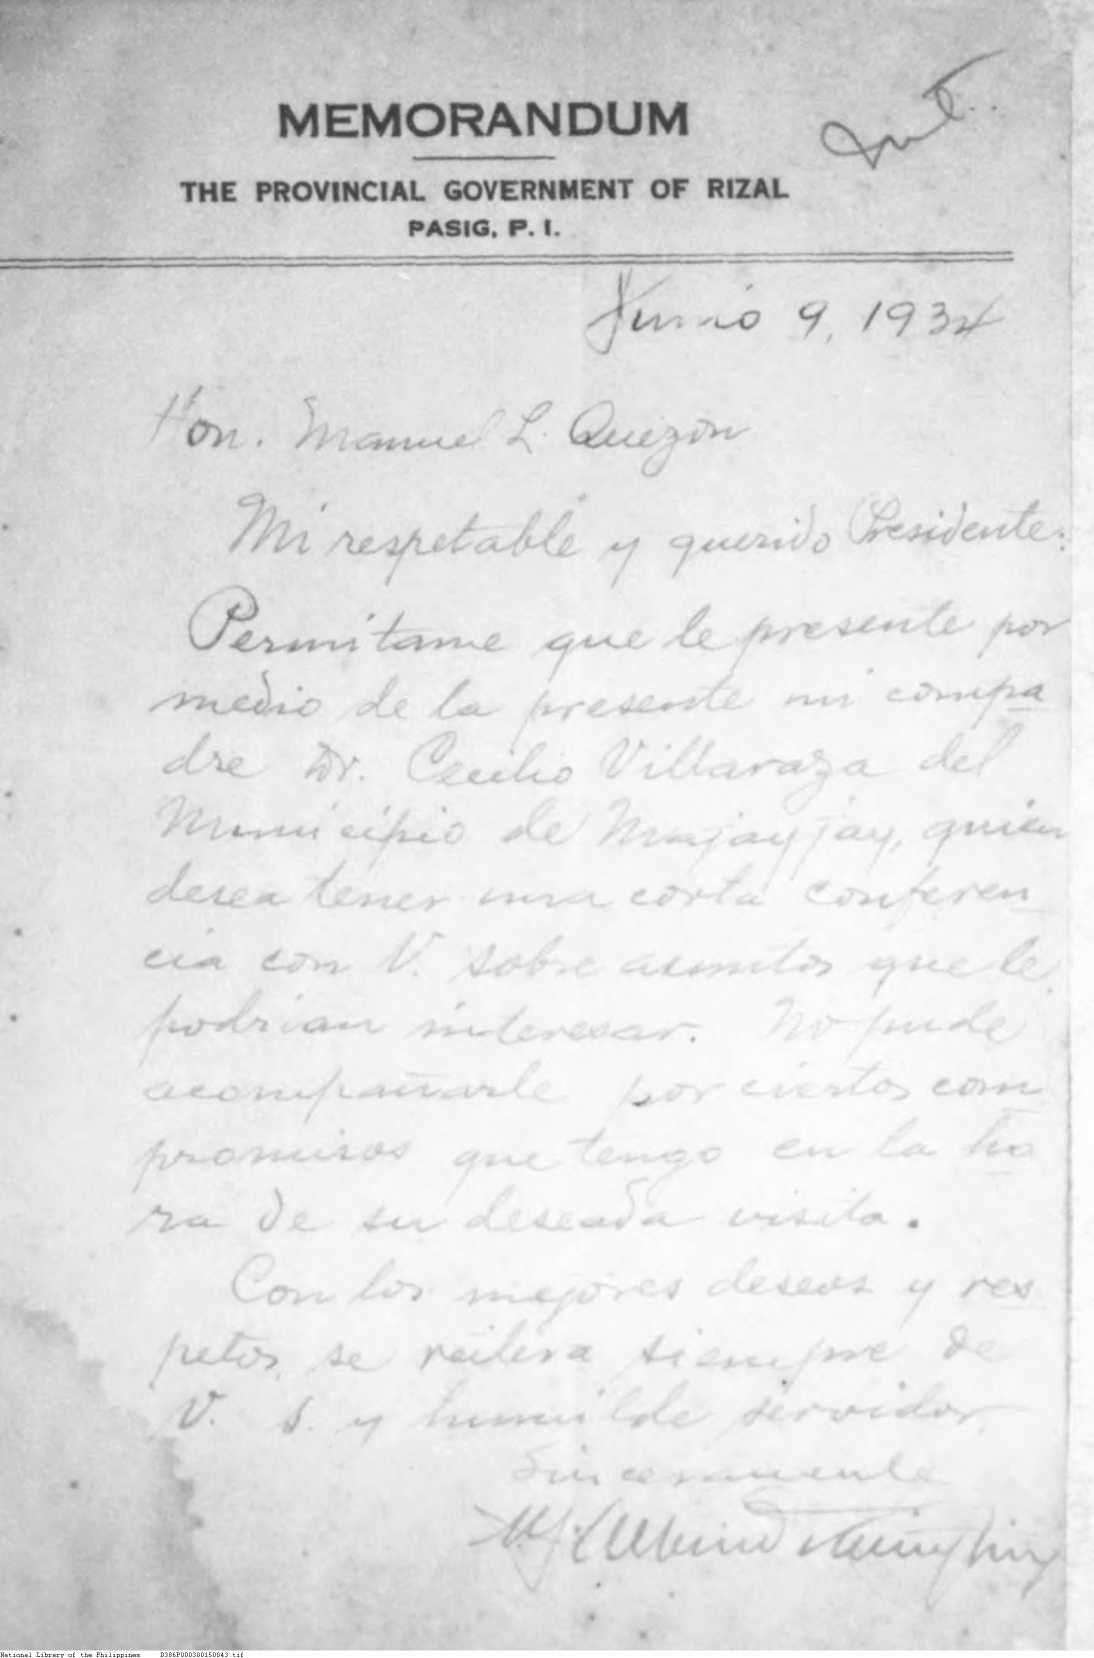 MEMORANDUM
THE PROVINCIAL GOVERNMENT OF RIZAL
PASIG, P. I.
Junio 9, 1934
Hon. Manuel L. Quezon
Mi respetable y querido Presidente:
Permitame que le presente por
medio de la presente mi compa
dre Dr. Cecilio Villaraza del
Municipio de Majayjay, quien
desea tener una corta conferen
cia con V. sobre asuntos que le
podrian interesar. No pude
acompañarle por ciertos com
promisos que tengo en la ho
ra de su deseada visita.
Con los mejores deseos y res
petos, se reitera siempre de
V. S. y humilde servidor
Sinceramente
National Library of the Philippines D386P000380150043.tif